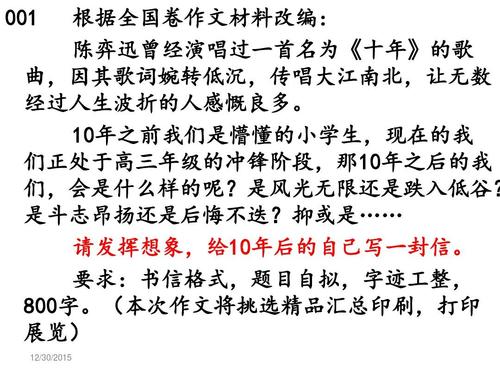 001 根据全国卷作文材料改编：
陈弈迅曾经演唱过一首名为《十年》的歌
曲，因其歌词婉转低沉，传唱大江南北，让无数
经过人生波折的人感慨良多。
10年之前我们是懵懂的小学生，现在的我
们正处于高三年级的冲锋阶段，那10年之后的我
们，会是什么样的呢？是风光无限还是跌入低谷？
是斗志昂扬还是后悔不迭？抑或是……
请发挥想象，给10年后的自己写一封信。
要求：书信格式，题目自拟，字迹工整，
800字。（本次作文将挑选精品汇总印刷，打印
展览）
12/30/2015